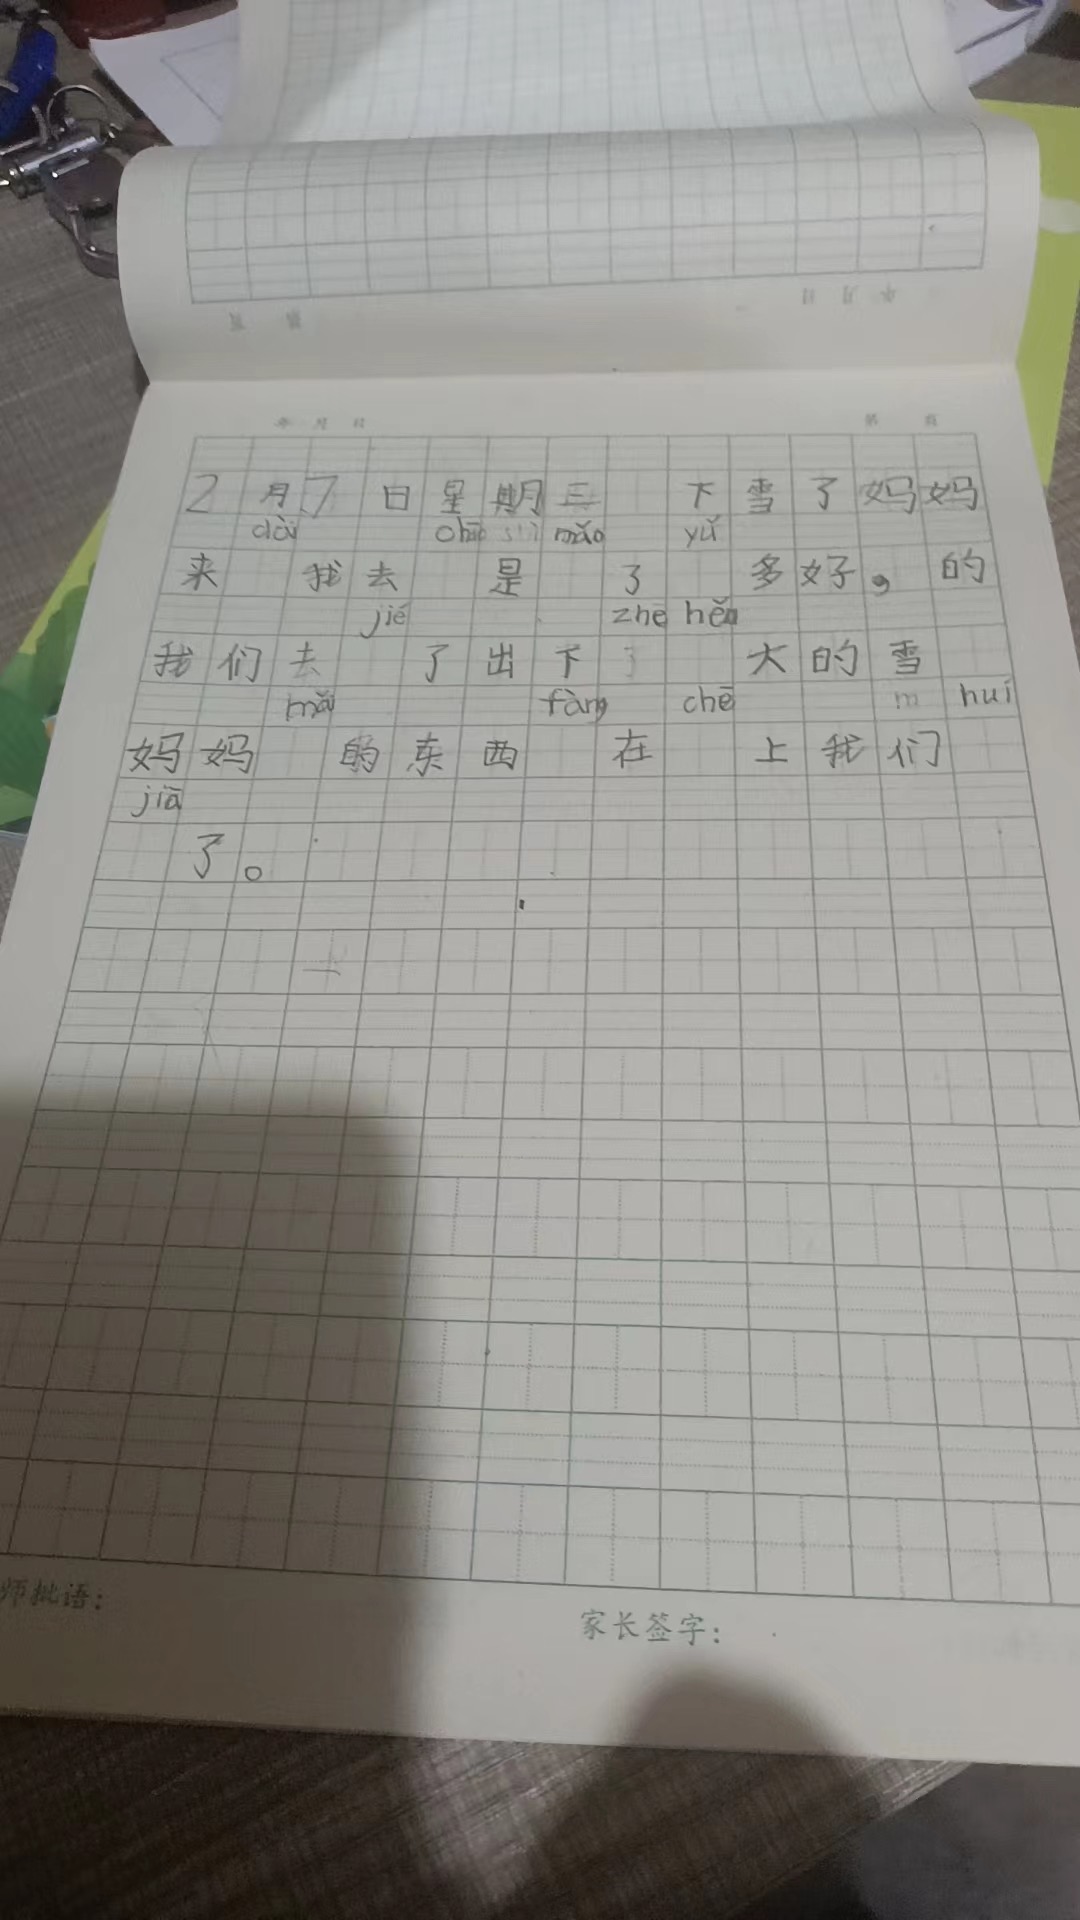 年 月 日 第 页
2月7日星期三 下雪了妈妈
dài chāo mǎo yǔ
来 我去 是 了 多好，的
jié zhe hěn
我们去 了出下了 大的雪
mǎi fàng chē m huí
妈妈 的东西 在 上我们
jiā
了。
师批语：
家长签字：